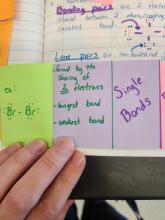 Bonding pairs are 2 electrons
shared between 2 atoms
covalent bond
Lone pairs are
- formed by the
sharing of
2 electrons
- longest bond
- weakest bond
Single
Bonds
ex:
:Br - Br: